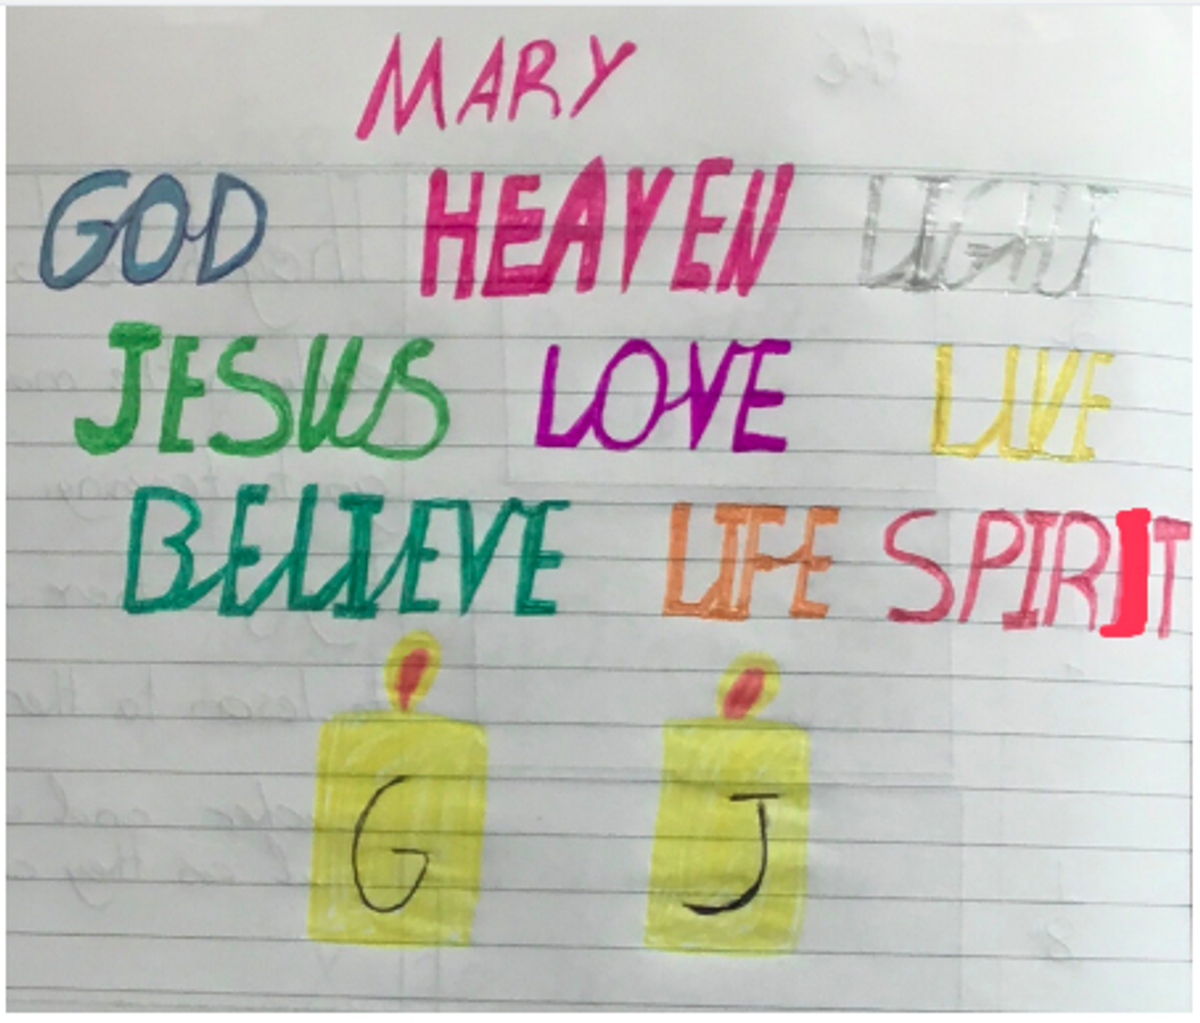 MARY
GOD HEAVEN LIGHT
JESUS LOVE LIVE
BELIEVE LIFE SPIRIT
G J